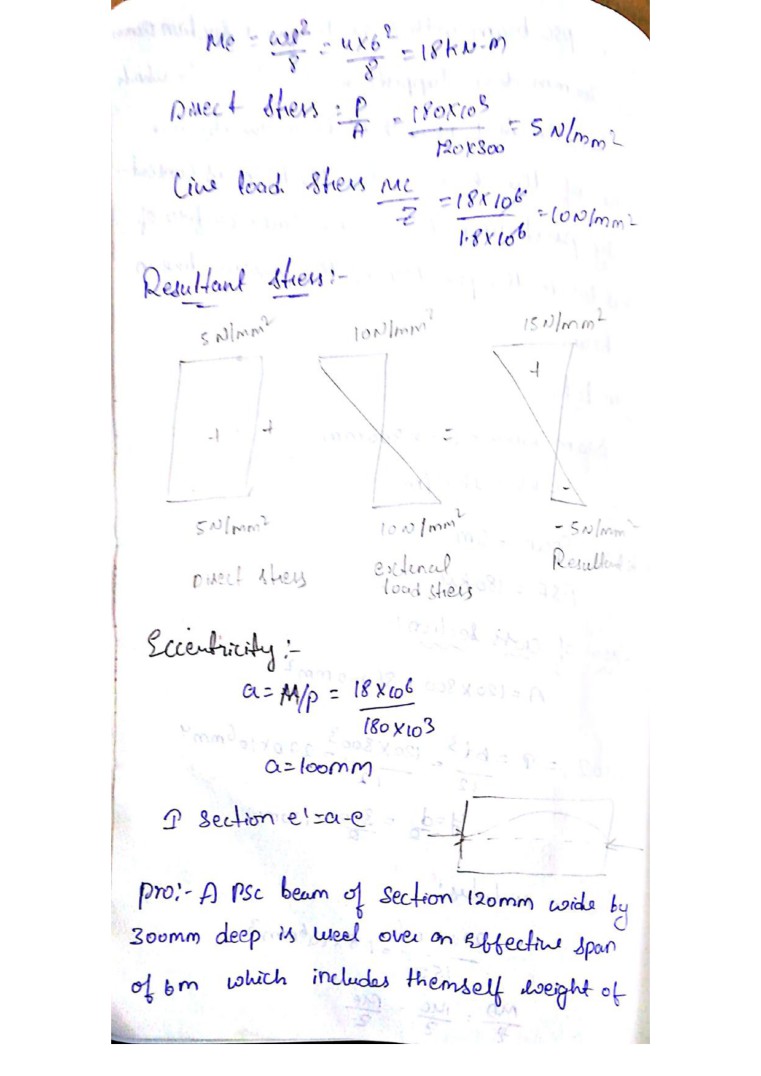 Mc = wl²/8 = 4x6²/8 = 18 kN-m
Direct stress : P/A = 180x10³/120x300 = 5 N/mm²
Live load stress Mc/Z = 18x10⁶/1.8x10⁶ = 10N/mm²
Resultant stress:-
5 N/mm² 10N/mm² 15N/mm²
+ + = + -
5N/mm² 10N/mm² -5N/mm²
Direct stress external load stress Resultant
Eccentricity:-
a = M/p = 18x10⁶/180x10³
a=100mm
I section e'=a-e
Pro:- A PSC beam of section 120mm wide by
300mm deep is used over an Effective span
of 6m which includes themself weight of